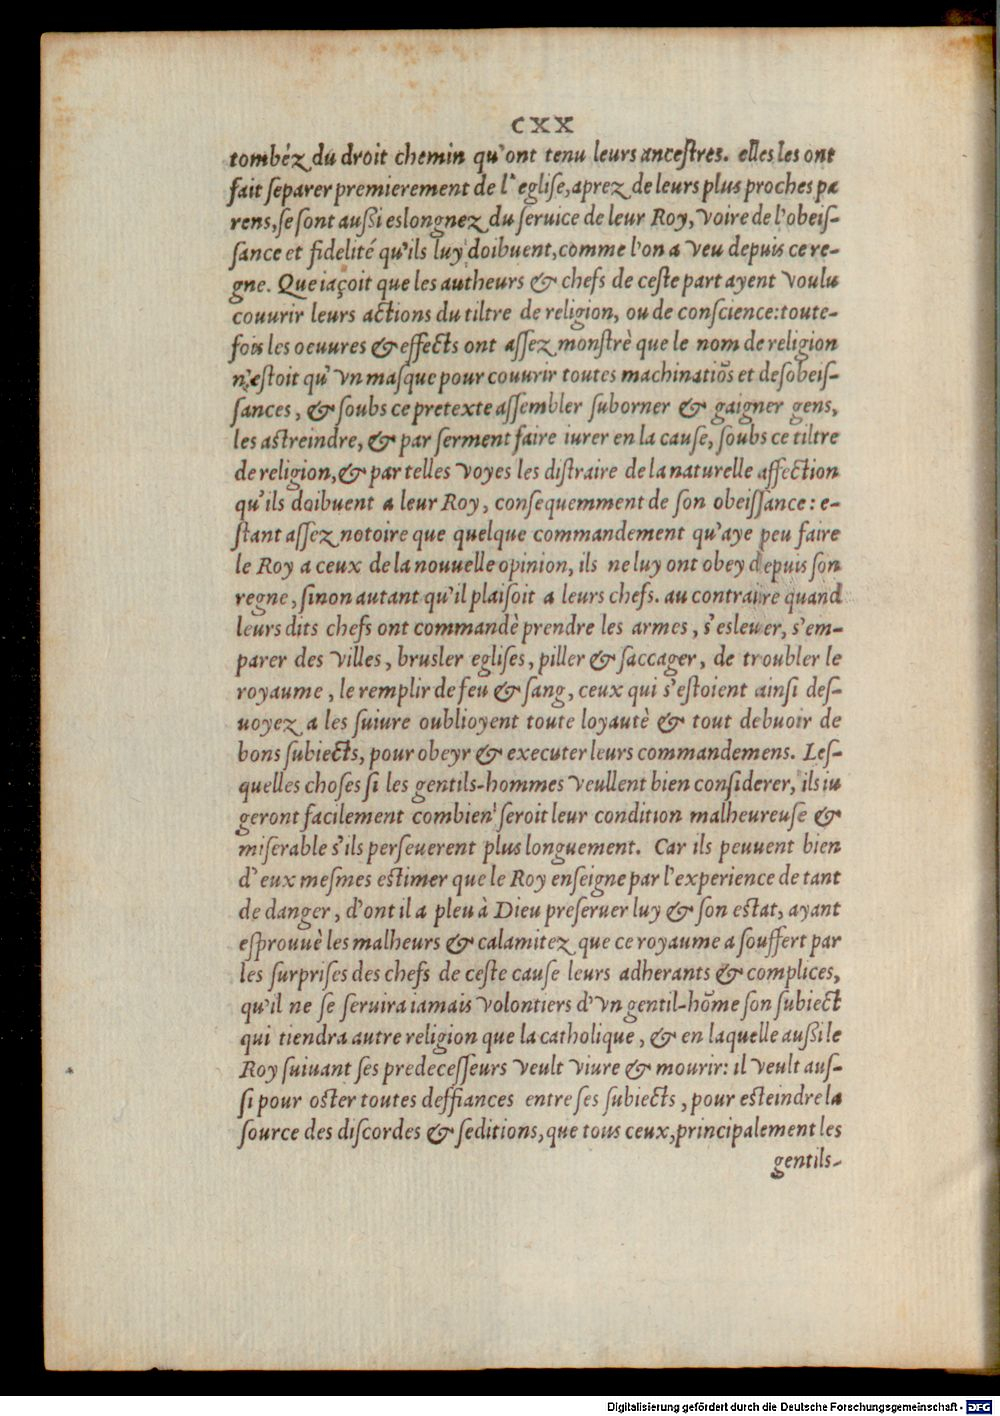 CXX
tombéz du droit chemin qu'ont tenu leurs anceſtres. elles les ont
fait ſeparer premierement de l' egliſe, aprez de leurs plus proches pa
rens, ſe ſont außi eslongnez du ſeruice de leur Roy, voire de l'obeiſ-
ſance et fidelité qu'ils luy doibuent, comme l'on a veu depuis ce re-
gne. Que iaçoit que les autheurs & chefs de ceſte part ayent voulu
couurir leurs actions du tiltre de religion, ou de conſcience: toute-
fois les oeuures & effects ont aſſez monſtrè que le nom de religion
n'eſtoit qu' vn maſque pour couurir toutes machinatiōs et deſobeiſ-
ſances, & ſoubs ce pretexte aſſembler ſuborner & gaigner gens,
les astreindre, & par ſerment faire iurer en la cauſe, ſoubs ce tiltre
de religion, & par telles voyes les diſtraire de la naturelle affection
qu'ils doibuent a leur Roy, conſequemment de ſon obeiſſance: e-
ſtant aſſez notoire que quelque commandement qu'aye peu faire
le Roy a ceux de la nouuelle opinion, ils ne luy ont obey depuis ſon
regne, ſinon autant qu'il plaiſoit a leurs chefs. au contraire quand
leurs dits chefs ont commandè prendre les armes, s'esleuer, s'em-
parer des villes, brusler egliſes, piller & ſaccager, de troubler le
royaume, le remplir de feu & ſang, ceux qui s'eſtoient ainſi deſ-
uoyez a les ſuiure oublioyent toute loyautè & tout debuoir de
bons ſubiects, pour obeyr & executer leurs commandemens. Leſ-
quelles choſes ſi les gentils-hommes veullent bien conſiderer, ils iu
geront facilement combien ſeroit leur condition malheureuſe &
miſerable s'ils perſeuerent plus longuement. Car ils peuuent bien
d' eux meſmes estimer que le Roy enſeigne par l'experience de tant
de danger, d'ont il a pleu à Dieu preſeruer luy & ſon estat, ayant
eſprouuè les malheurs & calamitez que ce royaume a ſouffert par
les ſurpriſes des chefs de ceſte cauſe leurs adherants & complices,
qu'il ne ſe ſeruira iamais volontiers d'vn gentil-hōme ſon ſubiect
qui tiendra autre religion que la catholique, & en laquelle außi le
Roy ſuiuant ſes predeceſſeurs veult viure & mourir: il veult auſ-
ſi pour oster toutes deffiances entre ſes ſubiects, pour esteindre la
ſource des diſcordes & ſeditions, que tous ceux, principalement les
gentils-
Digitalisierung gefördert durch die Deutsche Forschungsgemeinschaft - DFG